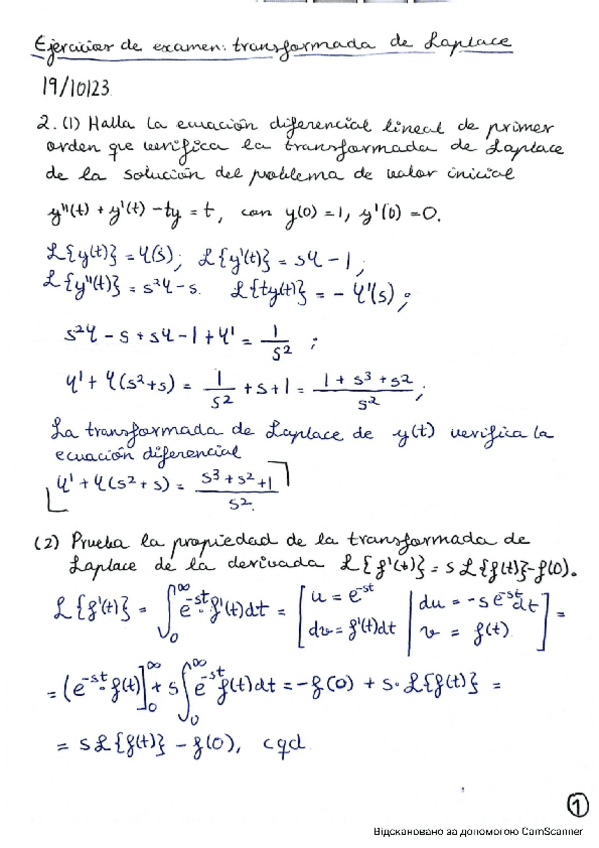 Ejercicios de examen: transformada de Laplace
19/10/23
2. (1) Halla la ecuación diferencial lineal de primer
orden que verifica la transformada de Laplace
de la solución del problema de valor inicial
y''(t) + y'(t) - ty = t, con y(0) = 1, y'(0) = 0.
ℒ{y(t)} = Y(s); ℒ{y'(t)} = sY - 1;
ℒ{y''(t)} = s²Y - s. ℒ{ty(t)} = - Y'(s);
s²Y - s + sY - 1 + Y' = 1/s² ;
Y' + Y(s² + s) = 1/s² + s + 1 = (1 + s³ + s²)/s² ;
La transformada de Laplace de y(t) verifica la
ecuación diferencial
Y' + Y(s² + s) = (s³ + s² + 1)/s².
(2) Prueba la propiedad de la transformada de
Laplace de la derivada ℒ{f'(t)} = sℒ{f(t)} - f(0).
ℒ{f'(t)} = ∫₀^∞ e^-st · f'(t)dt = [u = e^-st | du = -se^-st dt
dv = f'(t)dt | v = f(t)] =
= (e^-st · f(t)]₀^∞ + s∫₀^∞ e^-st f(t)dt = -f(0) + s·ℒ{f(t)} =
= sℒ{f(t)} - f(0), cqd.
1
Відскановано за допомогою CamScanner